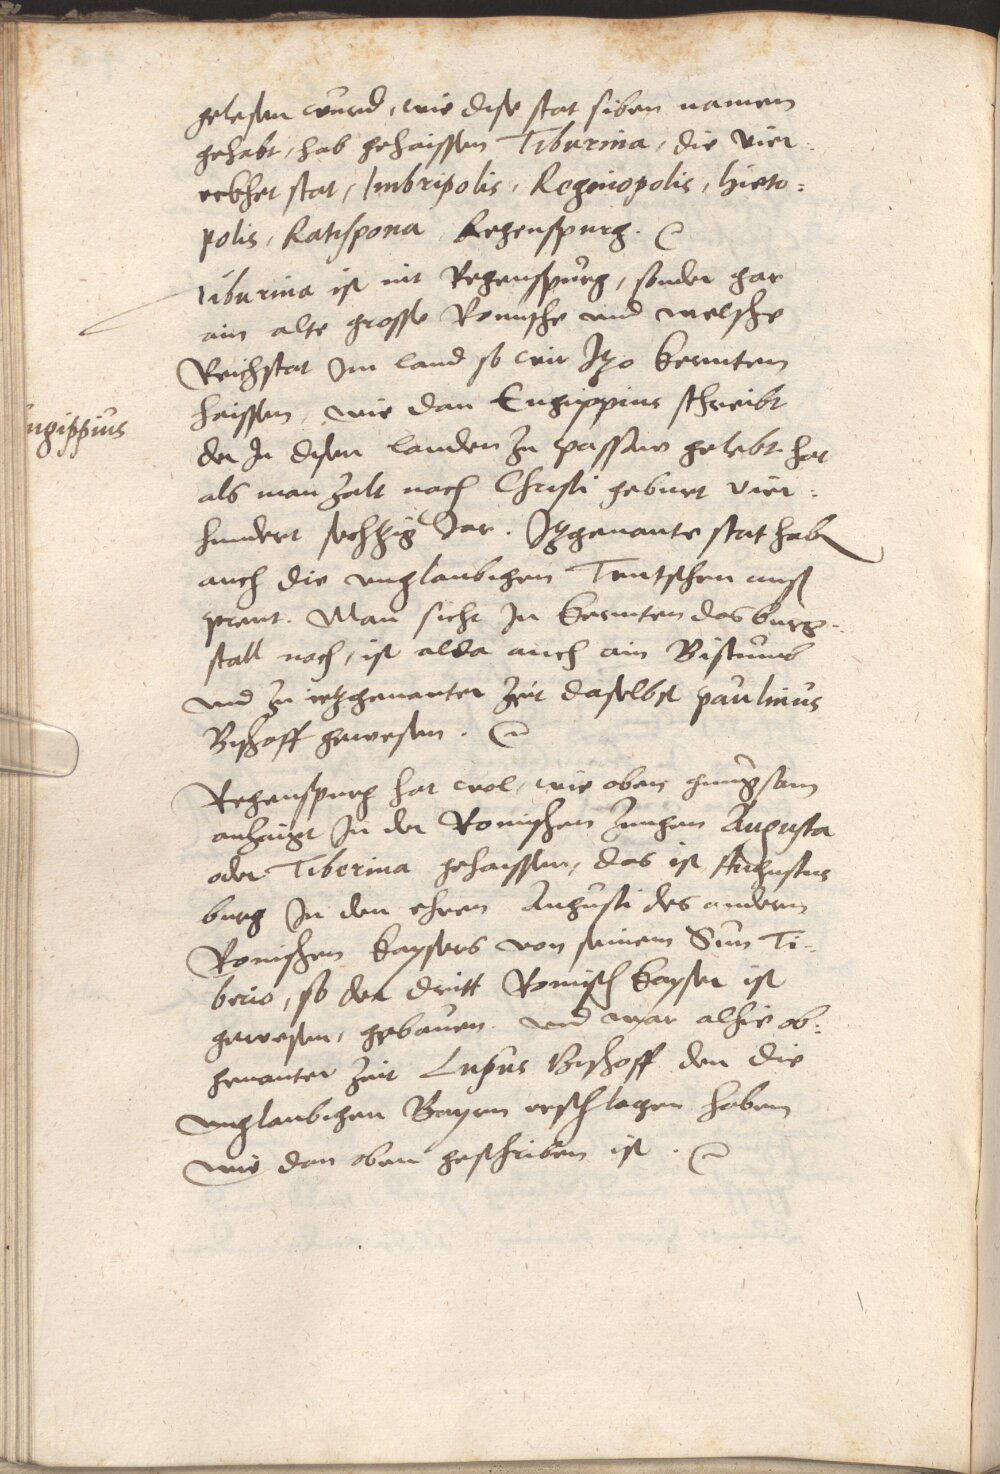 gelesen wurd, wie dise stat siben namen
gehabt, hab gehaissen Tiburina, die vier
eckhet stat, Imbripolis, Reginopolis, hieto:
polis, Ratispona Regenspurg.
Tiburina ist nit Regenspurg, sonder gar
ain alte grosse Romische und welsche
Reichstat Im land so wir Itzo kernten
haissen, wie dan Eugippius schreibt
ugippius
der In disen landen zu passaw gelebt hat
als man zalt nach Christi geburt vier:
hundert sechtzig Jar. Itzgenante stat habn
auch die unglaubigen Teutschen auß
prent. Man sicht In kernten das burg-
stall noch, ist alda auch ain Bistumb
und zu ietzgenanter zeit daselbst paulinus
Bischoff gewesen.
Regenspurg hat wol, wie oben gnugsam
anzaigt In der Romischen zungen Augusta
oder Tiberina gehaissen, das ist Augustus
burg In den ehren Augusti des andern
Romischen kaysers von seinem Sun Ti-
berio, so der dritt Romisch kayser ist
gewesen, gebauen und war alhie ob:
genanter zeit Lupus Bischoff den die
unglaubigen Bayrn erschlagen haben
wie dan oben geschriben ist.